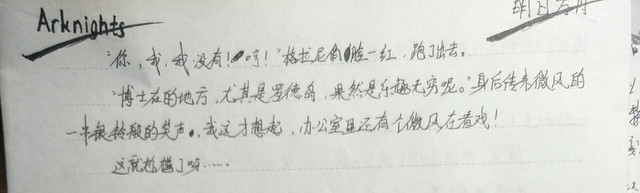 Arknights
明日方舟
“你，我，我没有！哼！”格拉尼俏脸一红，跑了出去。
“博士在的地方，尤其是罗德岛，果然是乐趣无穷呢。”身后传来微风的
一串银铃般的笑声。我这才想起，办公室里还有个微风在看戏！
这就尴尬了呀……